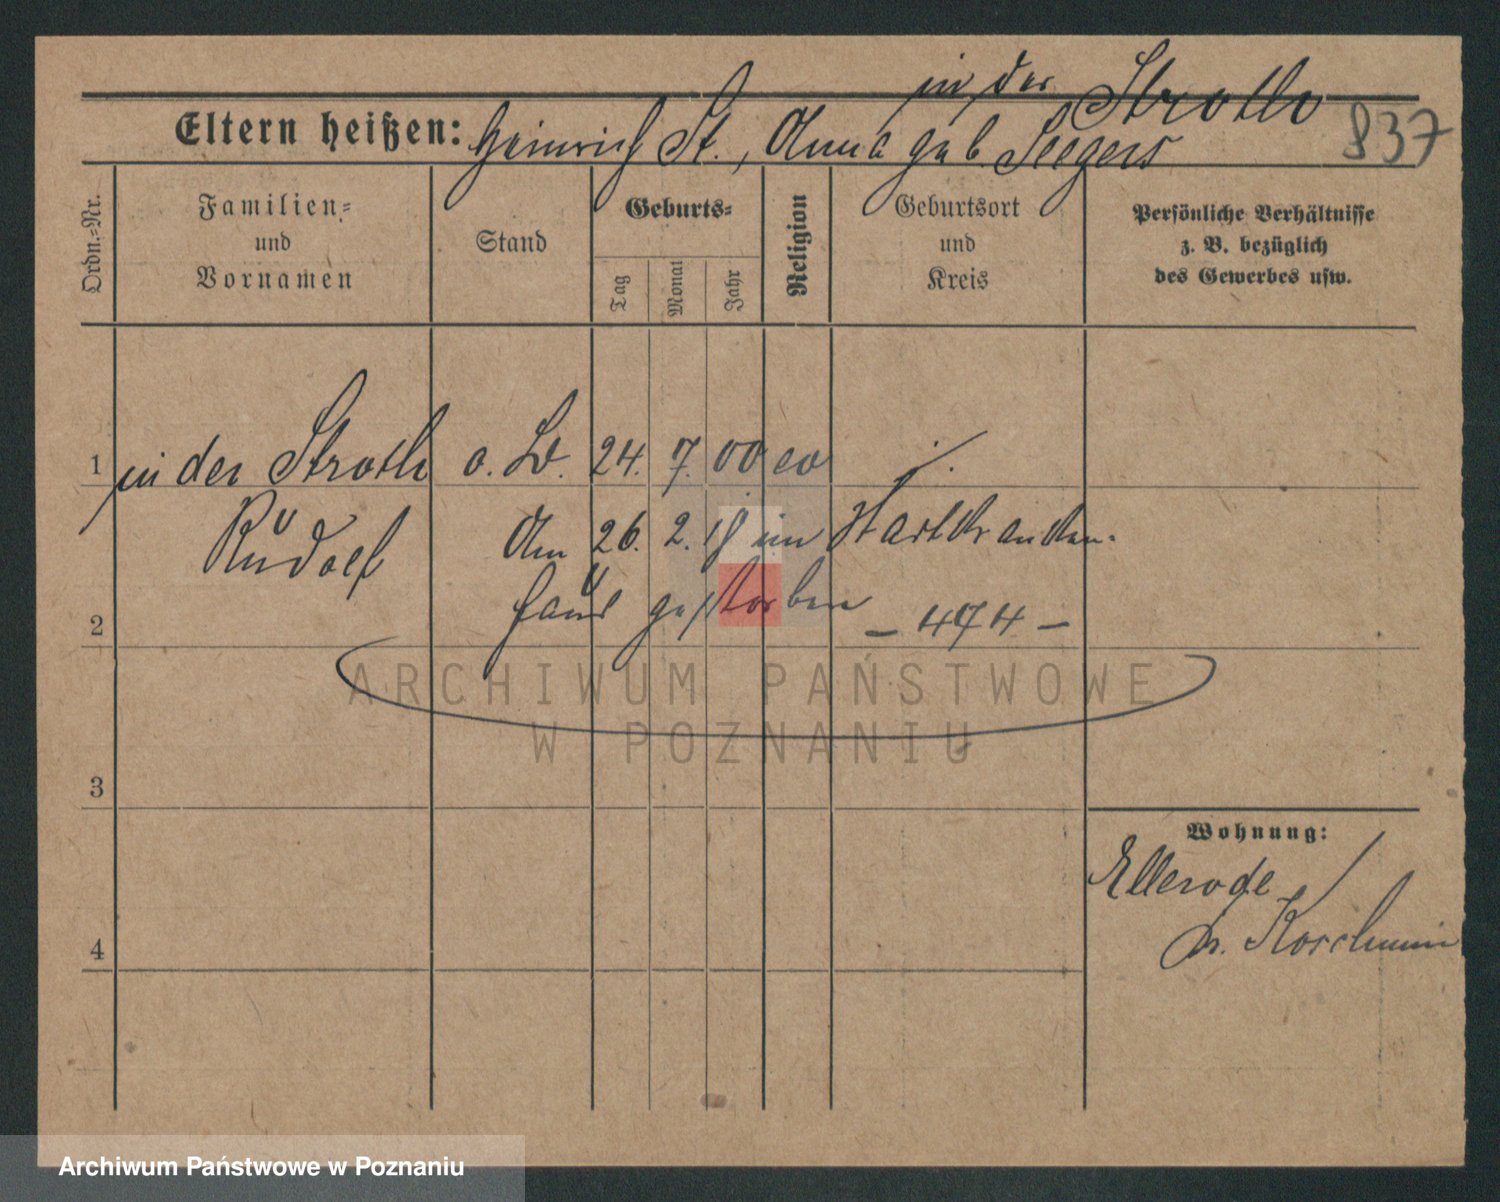 in der Stroth
Eltern heißen: Heinrich St., Anna geb. Seegers
837
Ordn.-Nr.
Familien-
und
Vornamen
Stand
Geburts-
Tag
Monat
Jahr
Religion
Geburtsort
und
Kreis
Persönliche Verhältnisse
z. B. bezüglich
des Gewerbes usw.
1 in der Stroth o. Ld. 24. 7. 00 ev ./.
Rudolf Am 26. 2. 18 im Stadtkranken-
2 haus gestorben – 474 –
ARCHIWUM PAŃSTWOWE
W POZNANIU
3
Wohnung:
Ellerode
Kr. Koschmin
4
Archiwum Państwowe w Poznaniu